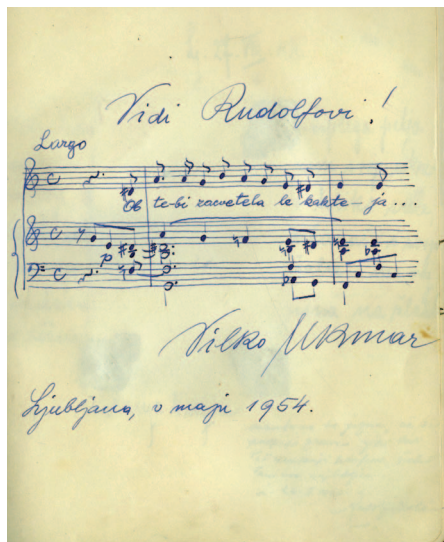 Vidi Rudolfovi!
Largo
Ob te-bi zacvetela le kakte-ja...
p
Vilko Ukmar
Ljubljana, v maju 1954.